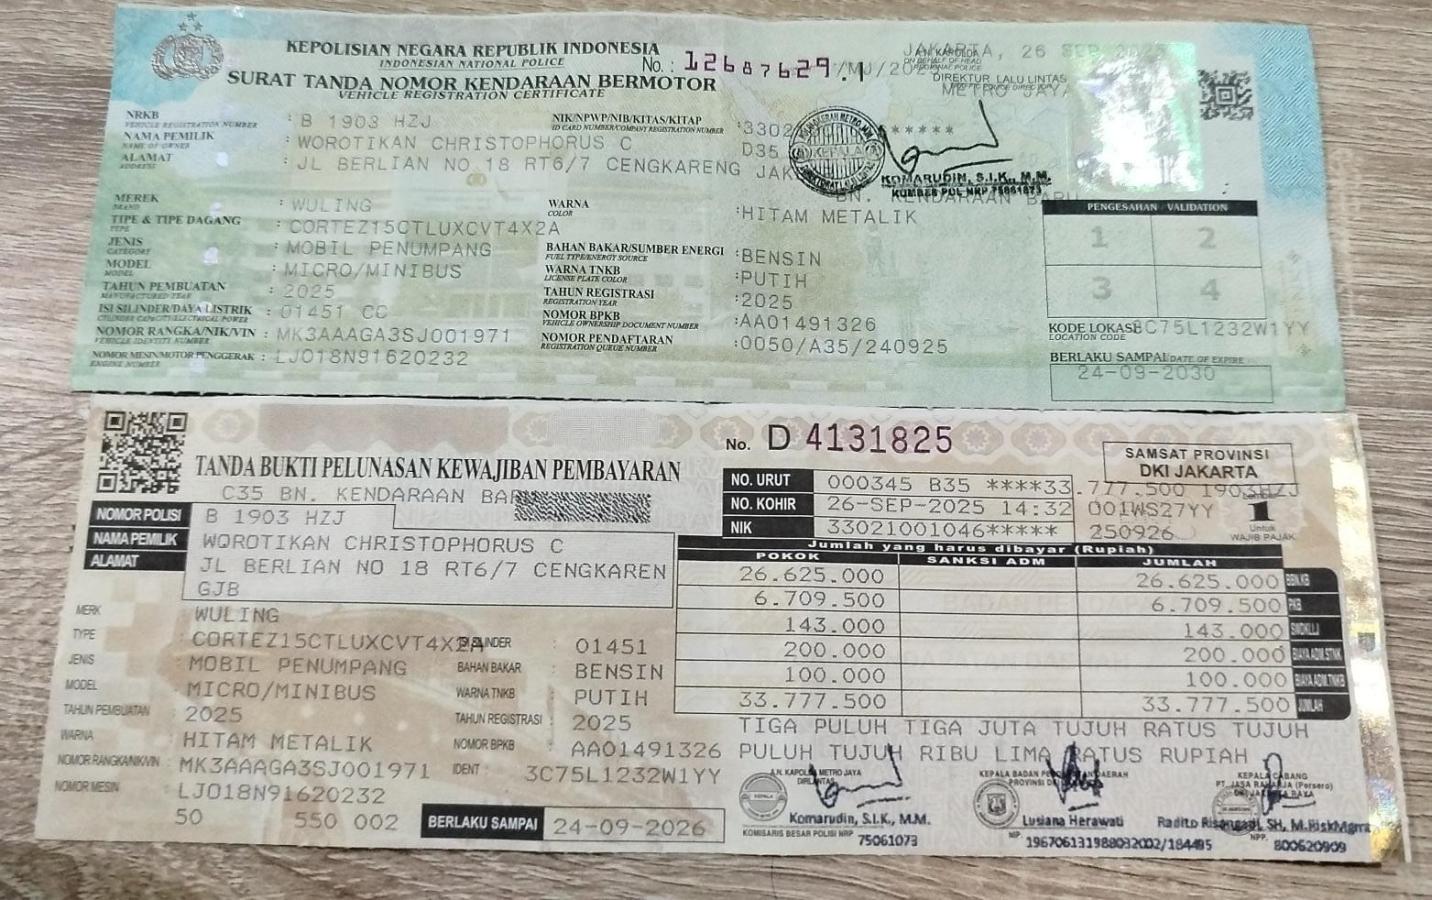 KEPOLISIAN NEGARA REPUBLIK INDONESIA
INDONESIAN NATIONAL POLICE
No. : 12687629 /MJ/20
SURAT TANDA NOMOR KENDARAAN BERMOTOR
VEHICLE REGISTRATION CERTIFICATE
JAKARTA, 26 SEP 2025
A.N. KAPOLDA
ON BEHALF OF HEAD
DIREKTUR LALU LINTAS
METRO JAYA
NRKB : B 1903 HZJ
VEHICLE REGISTRATION NUMBER
NAMA PEMILIK : WOROTIKAN CHRISTOPHORUS C
NAME OF OWNER
ALAMAT : JL BERLIAN NO 18 RT6/7 CENGKARENG JAK
ADDRESS
NIK/NPWP/NIB/KITAS/KITAP :3302 *****
ID CARD NUMBER/COMPANY REGISTRATION NUMBER
D35
KEPALA
KOMARUDIN, S.I.K., M.M.
KOMBES POL NRP 75061073
BN. KENDARAAN BARU
MEREK : WULING
BRAND
TIPE & TIPE DAGANG : CORTEZ15CTLUXCVT4X2A
TYPE
JENIS : MOBIL PENUMPANG
CATEGORY
MODEL : MICRO/MINIBUS
MODEL
TAHUN PEMBUATAN : 2025
MANUFACTURED YEAR
ISI SILINDER/DAYA LISTRIK : 01451 CC
CYLINDER CAPACITY/ELECTRICAL POWER
NOMOR RANGKA/NIK/VIN : MK3AAAGA3SJ001971
VEHICLE IDENTITY NUMBER
NOMOR MESIN/MOTOR PENGGERAK : LJO18N91620232
ENGINE NUMBER
WARNA :HITAM METALIK
COLOR
BAHAN BAKAR/SUMBER ENERGI :BENSIN
FUEL TYPE/ENERGY SOURCE
WARNA TNKB :PUTIH
LICENSE PLATE COLOR
TAHUN REGISTRASI :2025
REGISTRATION YEAR
NOMOR BPKB :AA01491326
VEHICLE OWNERSHIP DOCUMENT NUMBER
NOMOR PENDAFTARAN :0050/A35/240925
REGISTRATION QUEUE NUMBER
PENGESAHAN VALIDATION
1 2
3 4
KODE LOKASI 3C75L1232W1YY
LOCATION CODE
BERLAKU SAMPAI DATE OF EXPIRE
24-09-2030
TANDA BUKTI PELUNASAN KEWAJIBAN PEMBAYARAN
No. D 4131825
SAMSAT PROVINSI
DKI JAKARTA
C35 BN. KENDARAAN BARU
NO. URUT 000345 B35 ****33.777.500 1903HZJ
NO. KOHIR 26-SEP-2025 14:32 001WS27YY
NIK 33021001046***** 250926
1
Untuk
WAJIB PAJAK
NOMOR POLISI B 1903 HZJ
NAMA PEMILIK WOROTIKAN CHRISTOPHORUS C
ALAMAT JL BERLIAN NO 18 RT6/7 CENGKAREN
GJB
MERK : WULING
TYPE : CORTEZ15CTLUXCVT4X2A
JENIS : MOBIL PENUMPANG
MODEL : MICRO/MINIBUS
TAHUN PEMBUATAN : 2025
WARNA : HITAM METALIK
NOMOR RANGKA/NIK/VIN : MK3AAAGA3SJ001971
NOMOR MESIN : LJO18N91620232
50 550 002
SILINDER : 01451
BAHAN BAKAR : BENSIN
WARNA TNKB : PUTIH
TAHUN REGISTRASI : 2025
NOMOR BPKB : AA01491326
IDENT : 3C75L1232W1YY
BERLAKU SAMPAI 24-09-2026
Jumlah yang harus dibayar (Rupiah)
POKOK SANKSI ADM JUMLAH
26.625.000 26.625.000 BBN.KB
6.709.500 6.709.500 PKB
143.000 143.000 SWDKLLJ
200.000 200.000 BIAYA ADM.STNK
100.000 100.000 BIAYA ADM.TNKB
33.777.500 33.777.500 JUMLAH
TIGA PULUH TIGA JUTA TUJUH RATUS TUJUH
PULUH TUJUH RIBU LIMA RATUS RUPIAH
A.N. KAPOLDA METRO JAYA
DIRLANTAS
Komarudin, S.I.K., M.M.
KOMISARIS BESAR POLISI NRP 75061073
KEPALA BADAN DAERAH
PROVINSI DKI
Lusiana Herawati
NIP. 196706131988032002/184495
KEPALA CABANG
PT. JASA RAHARJA (Persero)
DKI JAKARTA RAYA
Radito Risangadi, SH, M.RiskMgmt
NPP. 800620909